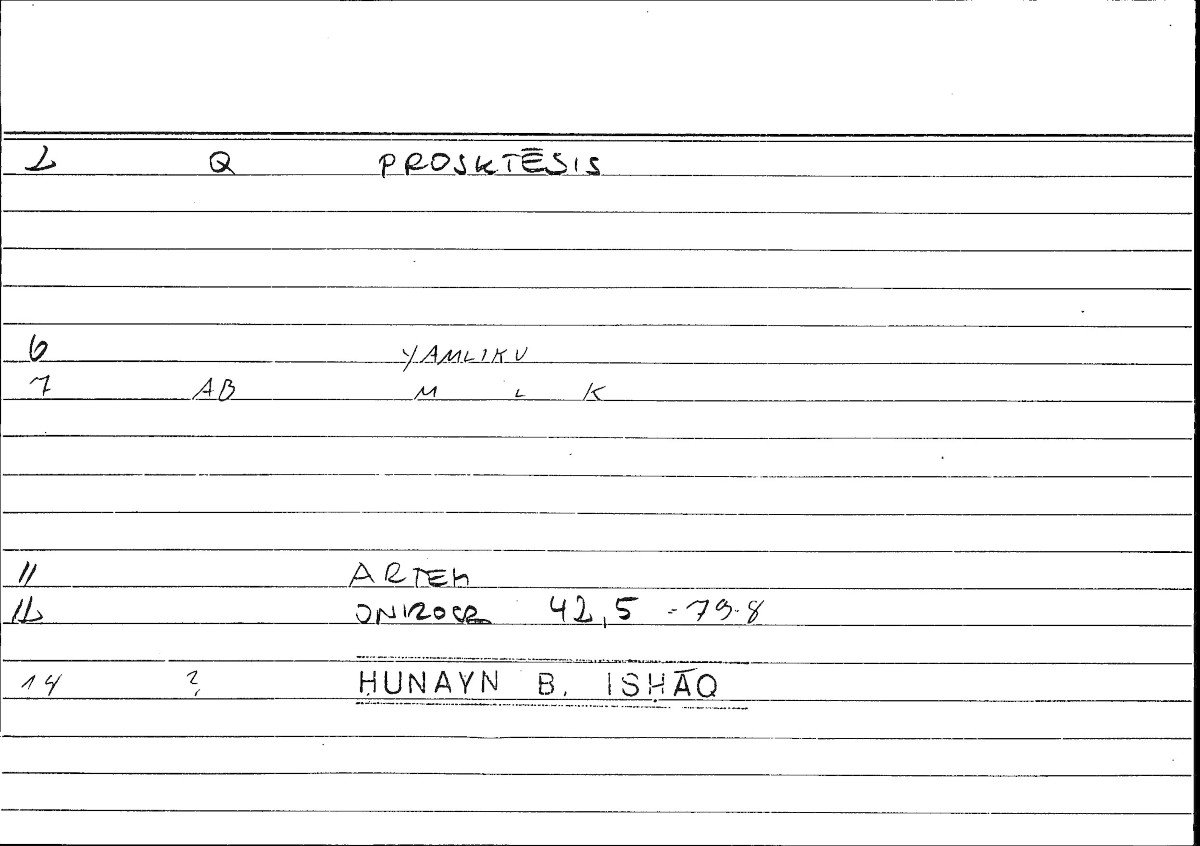 2 Q PROSKTĒSIS
6 YAMLIKU
7 AB M L K
11 ARTEM
12 ONIROCR 42,5 = 79.8
14 ? ḤUNAYN B. ISḤĀQ